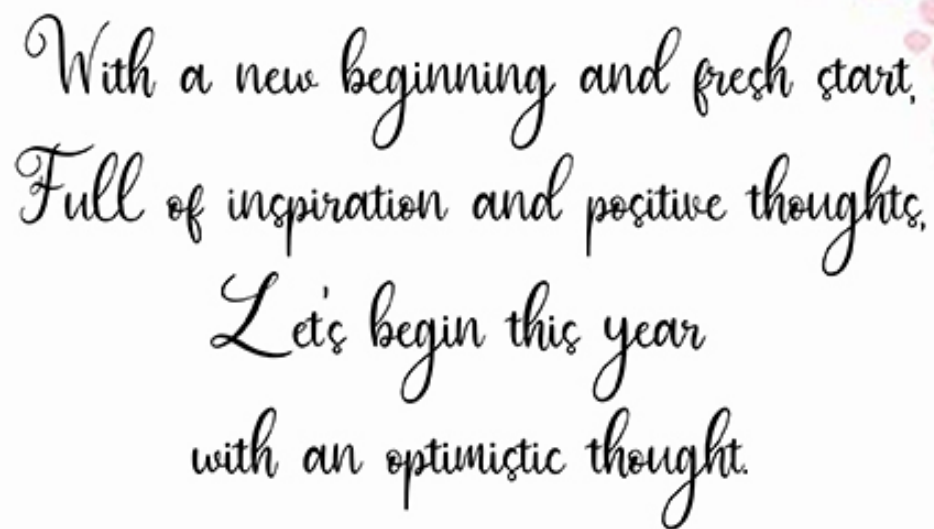 With a new beginning and fresh start,
Full of inspiration and positive thoughts,
Let's begin this year
with an optimistic thought.